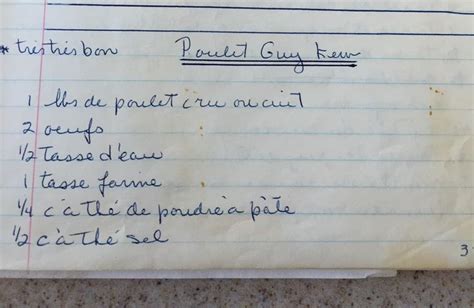 * très très bon Poulet Guy Kew
1 lbs de poulet cru ou cuit
2 oeufs
1/2 tasse d'eau
1 tasse farine
1/4 c à thé de poudre à pâte
1/2 c à thé sel
3